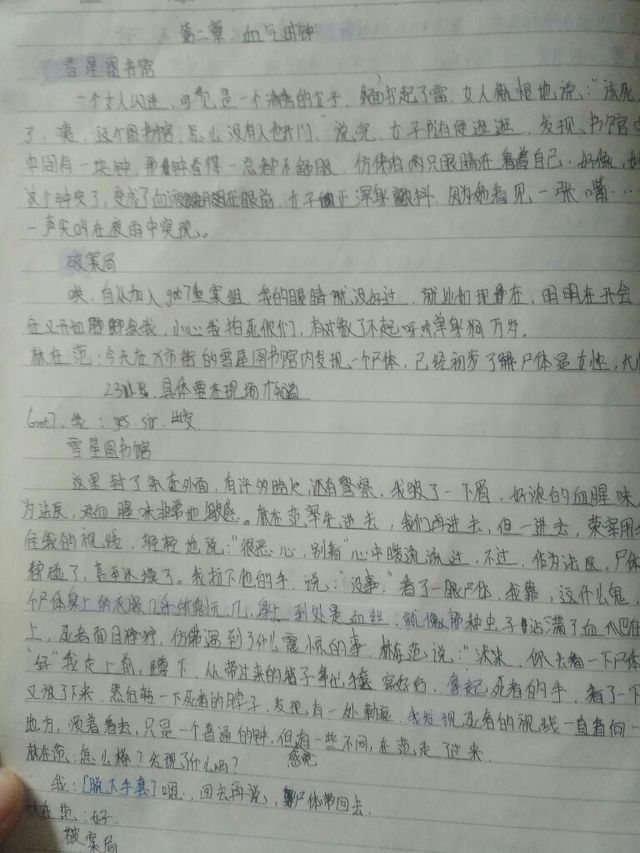 第二案:血与时钟
雪星图书馆
一个女人闪进,可见是一个清纯的女子,天打起了雷,女人恨恨地说:“该死
了,噢,这个图书馆,怎么没有人也开门。”说完,女子随便逛逛,发现,书馆
中间有一块钟,那钟看得一点都不舒服,仿佛有两只眼睛在看着自己,好像,
这个钟变了,变成了血液在眼前,女子浑身颤抖,因为她看见一张嘴……
一声尖叫在夜雨中突现。
破案局
唉,自从加入got7重案组,我的眼睛就没好过,就比如现在,明明在开会
又开始我,小心我拍死你们,有对散了不起呀单身狗万岁。
林在范:今天在X市街的雪星图书馆内发现一个尸体,已经初步了解尸体是女性,
23岁,具体要在现场才知道
Got7,我:yes sir,出发
雪星图书馆
这里封了条在外面,有许多路人还有警察,我皱了一下眉,好浓的血腥味,
为法医,对血腥味非常地敏感。林在范率先进去,我们再进去,但一进去,荣宰用
住我的视线,轻轻地说:“很恶心,别看”心中暖流流过,不过,作为法医,尸体
碰了,甚至还摸了。我拉下他的手,说:“没事。”看了一眼尸体,我靠,这什么鬼,
尸体身上的衣服几乎,身上到处是血丝,就像那种虫子沾满了血爬在
上,死者面目狰狞,仿佛遇到了什么震惊的事,林在范说:“沫沫,你去看一下尸体
“好”我走上前,蹲下,从带过来的箱子拿手套戴好后,拿起死者的手,看了一下
又放了下来,然后转一下死者的脖子,发现有一处勒痕,我发现死者的视线一直看向一
地方,顺着看去,只是一个普通的钟,但感觉有一些不同,在范走了过来
林在范:怎么样?发现了什么吗?
我:[脱下手套]嗯,回去再说,尸体带回去.
林在范:好
破案局